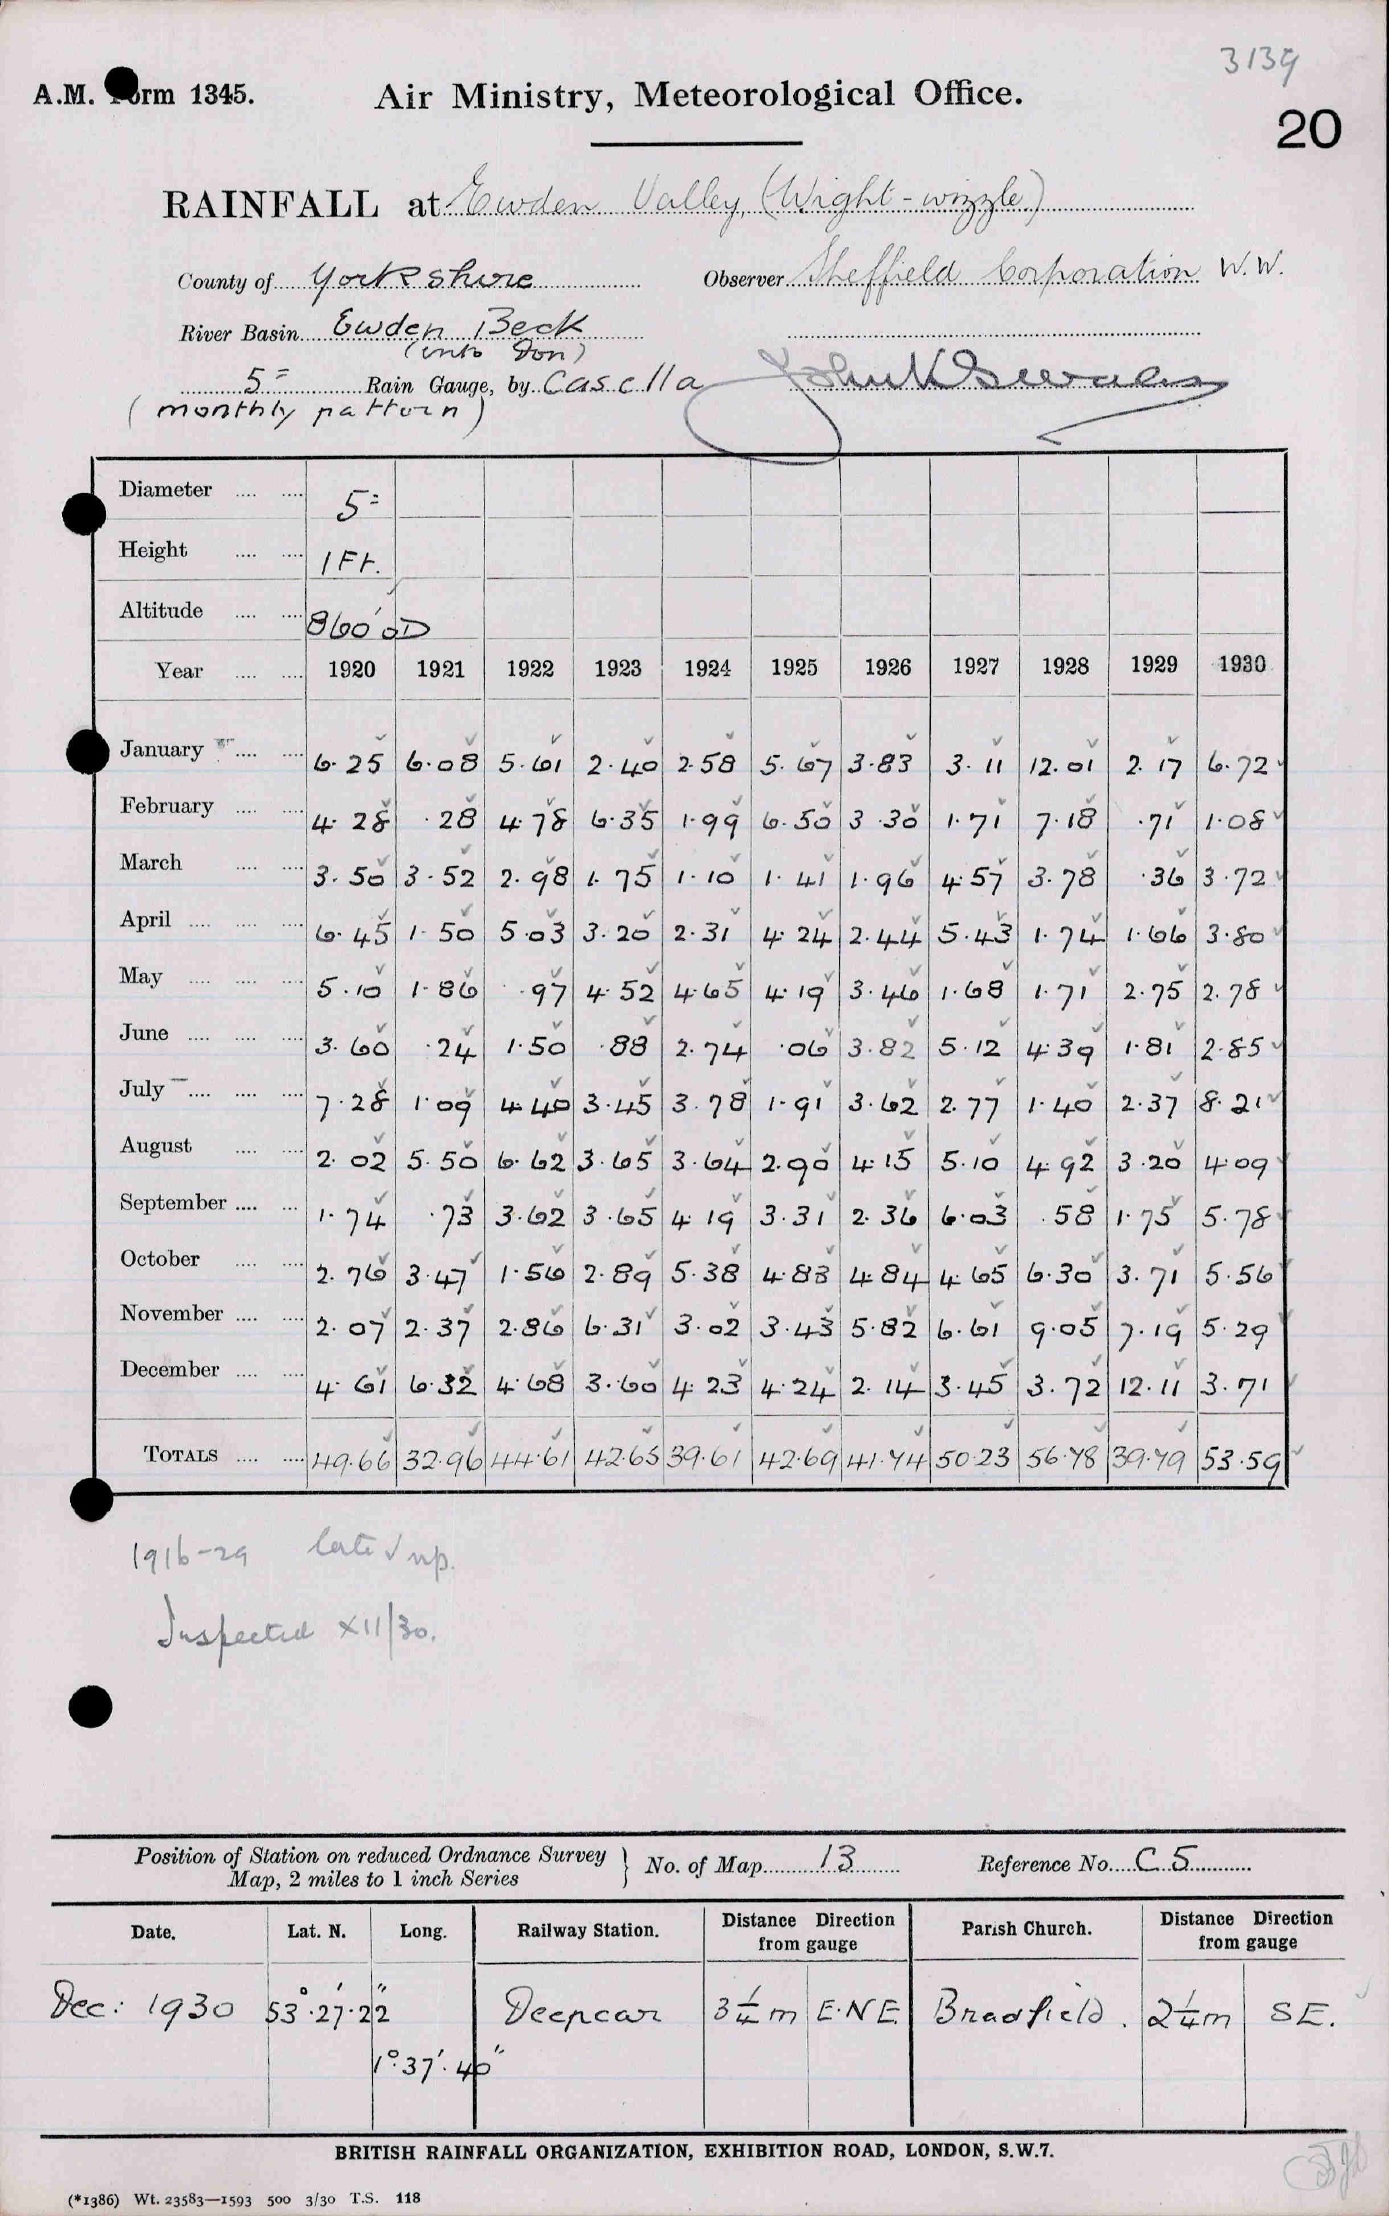 3139
A.M. Form 1345. Air Ministry, Meteorological Office.
20
RAINFALL at Ewden Valley, (Wight-wizzle)
County of Yorkshire Observer Sheffield Corporation W.W.
River Basin Ewden Beck
(into Don)
5" Rain Gauge, by Casella
(monthly pattern)
Diameter 5"
Height 1 Ft.
Altitude 860' OD
Year 1920 1921 1922 1923 1924 1925 1926 1927 1928 1929 1930
January 6.25 6.08 5.61 2.40 2.58 5.67 3.83 3.11 12.01 2.17 6.72
February 4.28 .28 4.78 6.35 1.99 6.50 3.30 1.71 7.18 .71 1.08
March 3.50 3.52 2.98 1.75 1.10 1.41 1.96 4.57 3.78 .36 3.72
April 6.45 1.50 5.03 3.20 2.31 4.24 2.44 5.43 1.74 1.66 3.80
May 5.10 1.86 .97 4.52 4.65 4.19 3.46 1.68 1.71 2.75 2.78
June 3.60 .24 1.50 .88 2.74 .06 3.82 5.12 4.39 1.81 2.85
July 7.28 1.09 4.40 3.45 3.78 1.91 3.62 2.77 1.40 2.37 8.21
August 2.02 5.50 6.62 3.65 3.64 2.90 4.15 5.10 4.92 3.20 4.09
September 1.74 .73 3.62 3.65 4.19 3.31 2.36 6.03 .58 1.75 5.78
October 2.76 3.47 1.56 2.89 5.38 4.83 4.84 4.65 6.30 3.71 5.56
November 2.07 2.37 2.86 6.31 3.02 3.43 5.82 6.61 9.05 7.19 5.29
December 4.61 6.32 4.68 3.60 4.23 4.24 2.14 3.45 3.72 12.11 3.71
TOTALS 49.66 32.96 44.61 42.65 39.61 42.69 41.74 50.23 56.78 39.79 53.59
1916-29 late
Inspected XII/30.
Position of Station on reduced Ordnance Survey
Map, 2 miles to 1 inch Series } No. of Map 13 Reference No. C 5
Date. Lat. N. Long. Railway Station. Distance Direction from gauge Parish Church. Distance Direction from gauge
Dec: 1930 53°.27'.22" Deepcar 3¼ m E.N.E. Bradfield. 2¼ m SE.
1°.37'.40"
BRITISH RAINFALL ORGANIZATION, EXHIBITION ROAD, LONDON, S.W.7.
(*1386) Wt. 23583—1593 500 3/30 T.S. 118